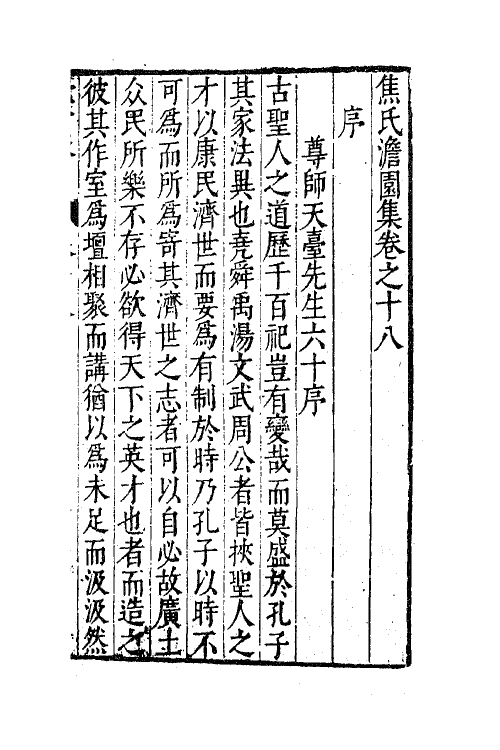 焦氏澹園集卷之十八
序
尊師天臺先生六十序
古聖人之道歷千百祀豈有變哉而莫盛於孔子
其家法異也堯舜禹湯文武周公者皆挾聖人之
才以康民濟世而要為有制於時乃孔子以時不
可為而所為寄其濟世之志者可以自必故廣土
众民所樂不存必欲得天下之英才也者而造之
彼其作室為壇相聚而講猶以為未足而汲汲然